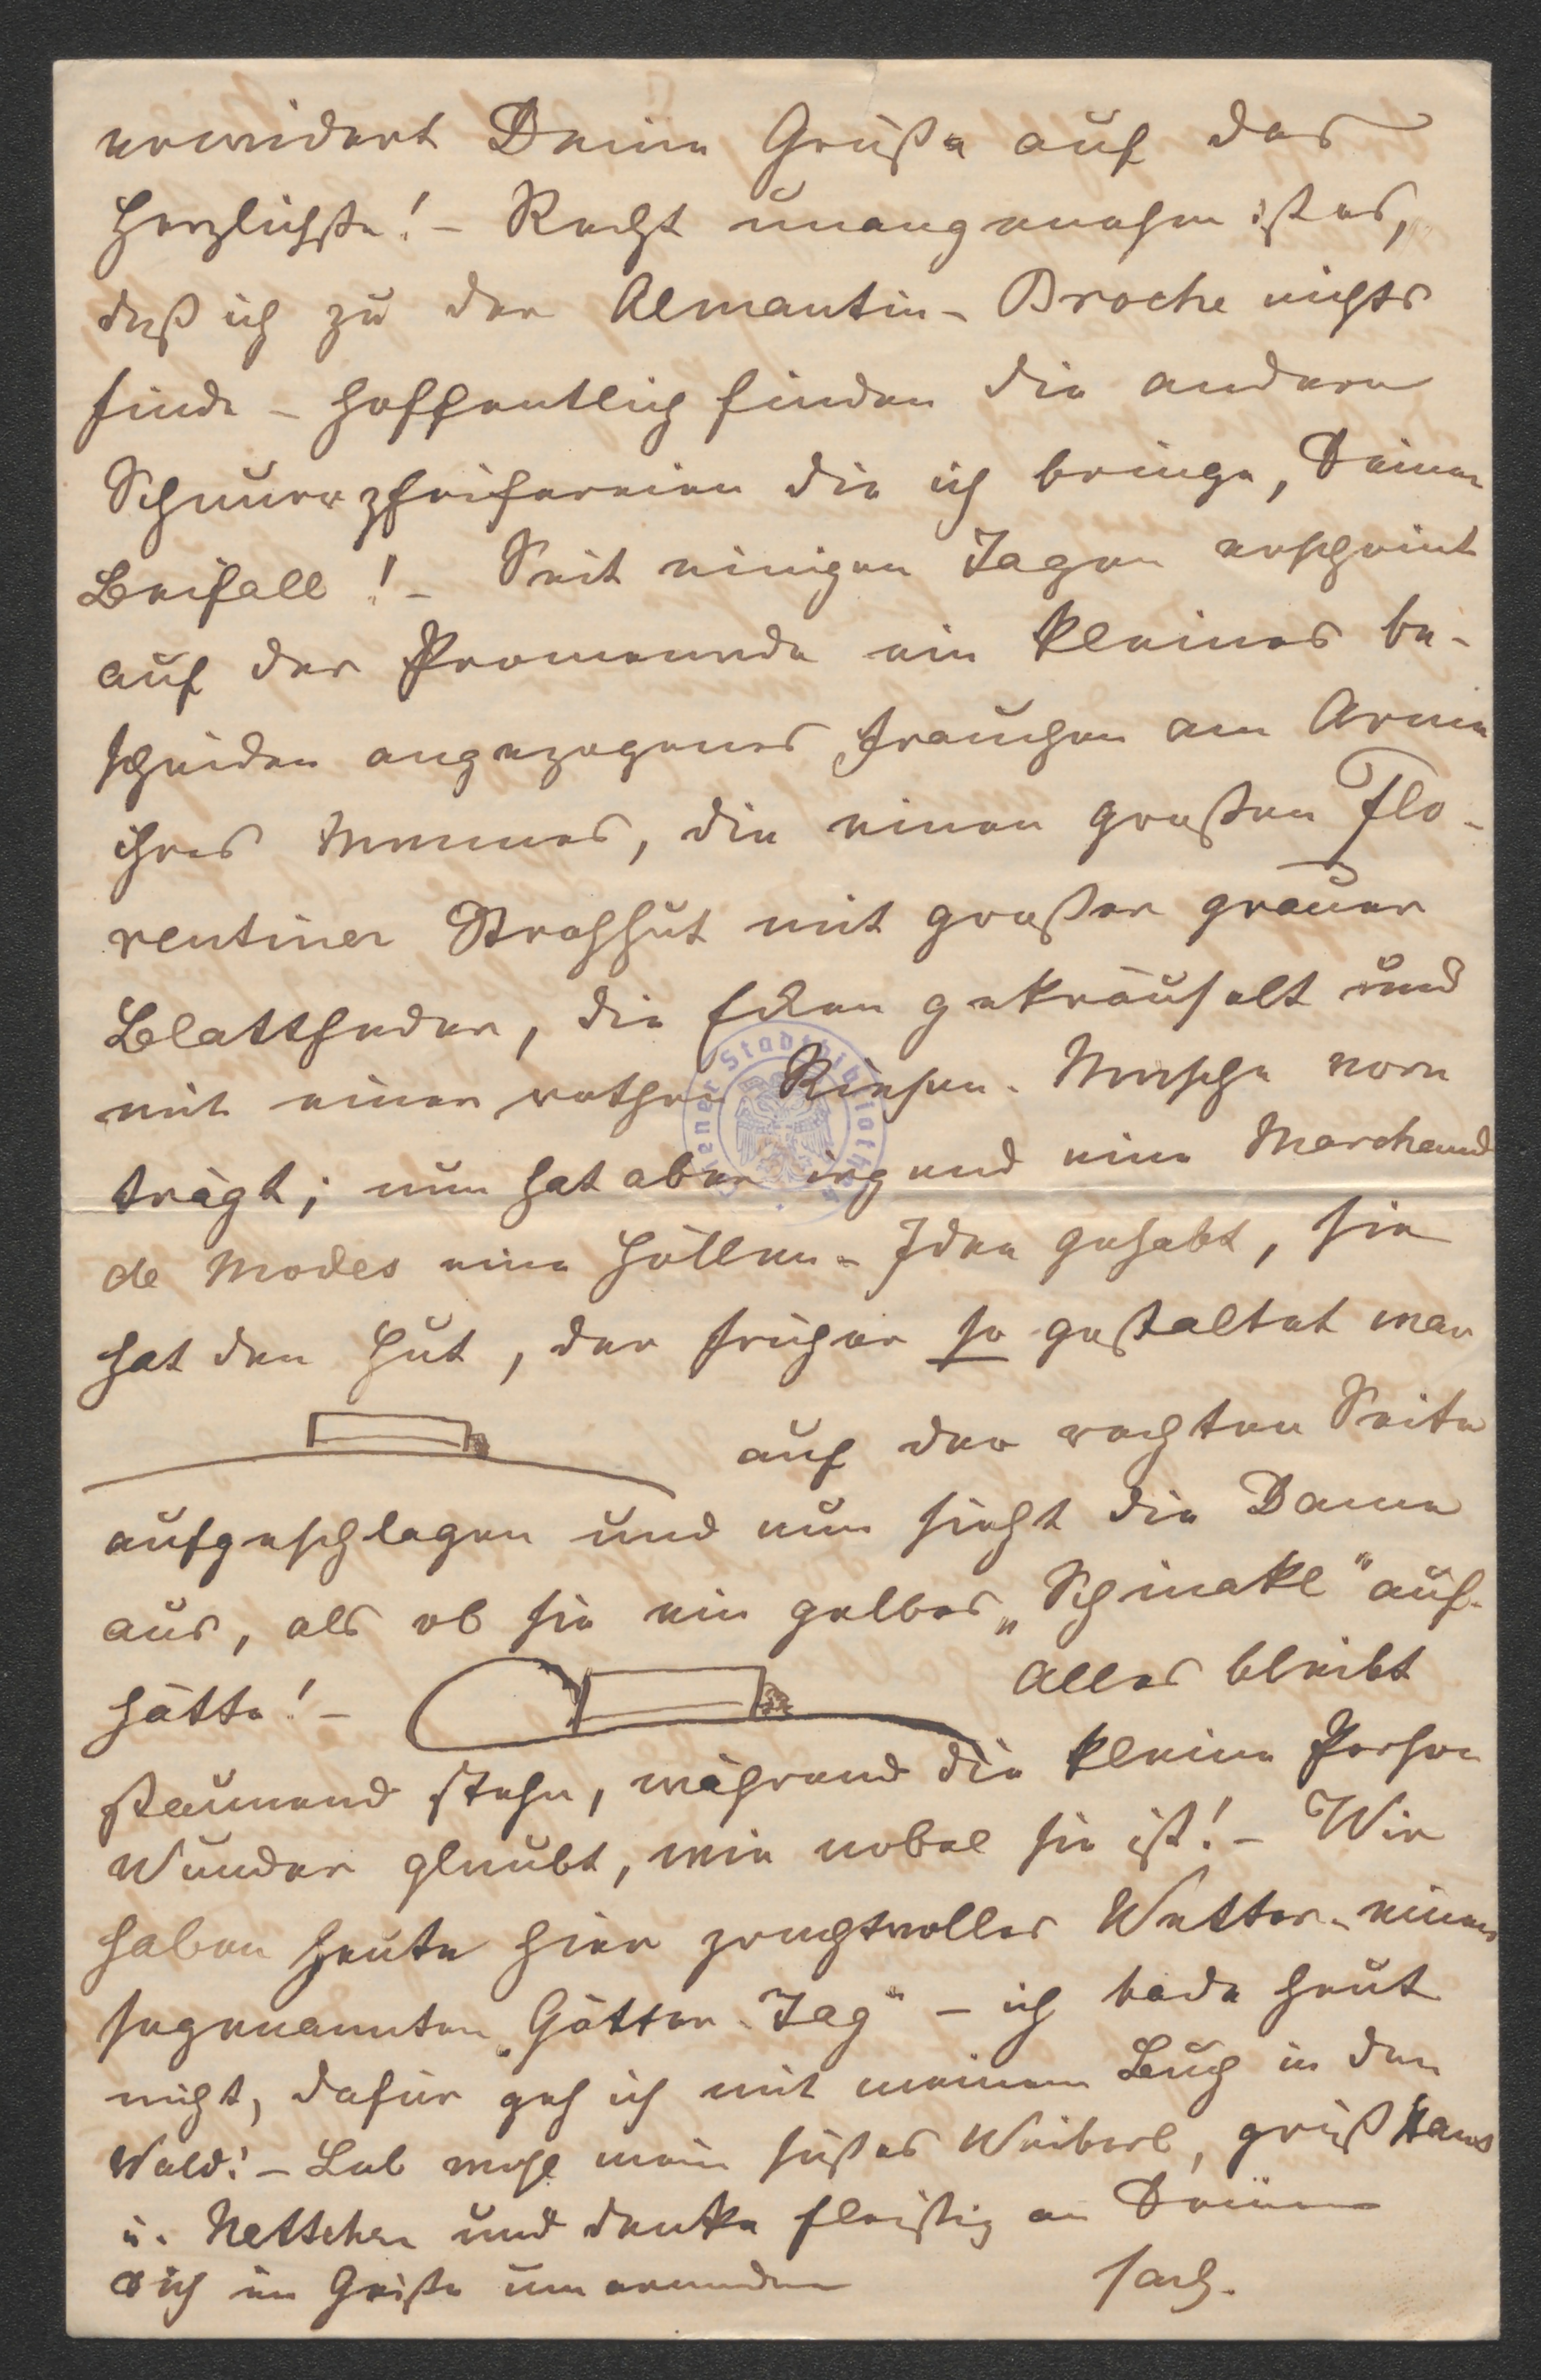 erwidert Deine Grüße auf das
Herzlichste! – Recht unangenehm ist es,
daß ich zu der Almantin- Broche nichts
finde – hoffentlich finden die andern
Schnurrpfeifereien die ich bringe, Deinen
Beifall! – Seit einigen Tagen erscheint
auf der Promenade ein kleines be-
scheiden angezogenes Frauchen am Arme
ihres Mannes, die einen großen Flo-
rentiner Strohhut mit großer grauer
Blattfeder, die Ecken gekräuselt und
mit einer rothen Riesen- Masche vorn
trägt; nun hat aber irgend eine Marchand
de Modes eine Höllen- Idee gehabt, sie
hat den Hut, der früher so gestaltet war
auf der rechten Seite
aufgeschlagen und nun sieht die Dame
aus, als ob sie ein gelbes „Schinakl" auf-
hätte! –
Alles bleibt
staunend stehn, während die kleine Person
Wunder glaubt, wie nobel sie ist! – Wir
haben heute hier prachtvolles Wetter – einen
sogenannten „Götter- Tag" – ich bade heut
nicht, dafür geh ich mit meinem Buch in den
Wald! – Leb wohl mein süßes Weiberl, grüß Hans
u. Nettchen und denke fleißig an Deinen
Dich im Geiste umarmenden
Wiener Stadtbibliothek